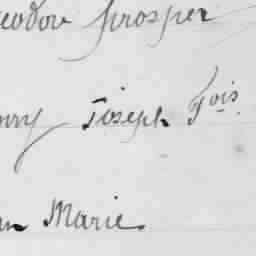 eodore prosper
nry Joseph Fois
an Marie.